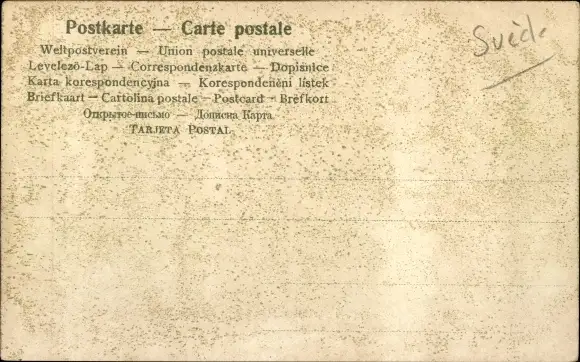 Postkarte — Carte postale
Weltpostverein — Union postale universelle
Levelező-Lap — Correspondenzkarte — Dopisnice
Karta korespondencyjna — Korespondenčni listek
Briefkaart — Cartolina postale — Postcard — Brefkort
Открытое письмо — Дописна Карта
Tarjeta Postal
Suède